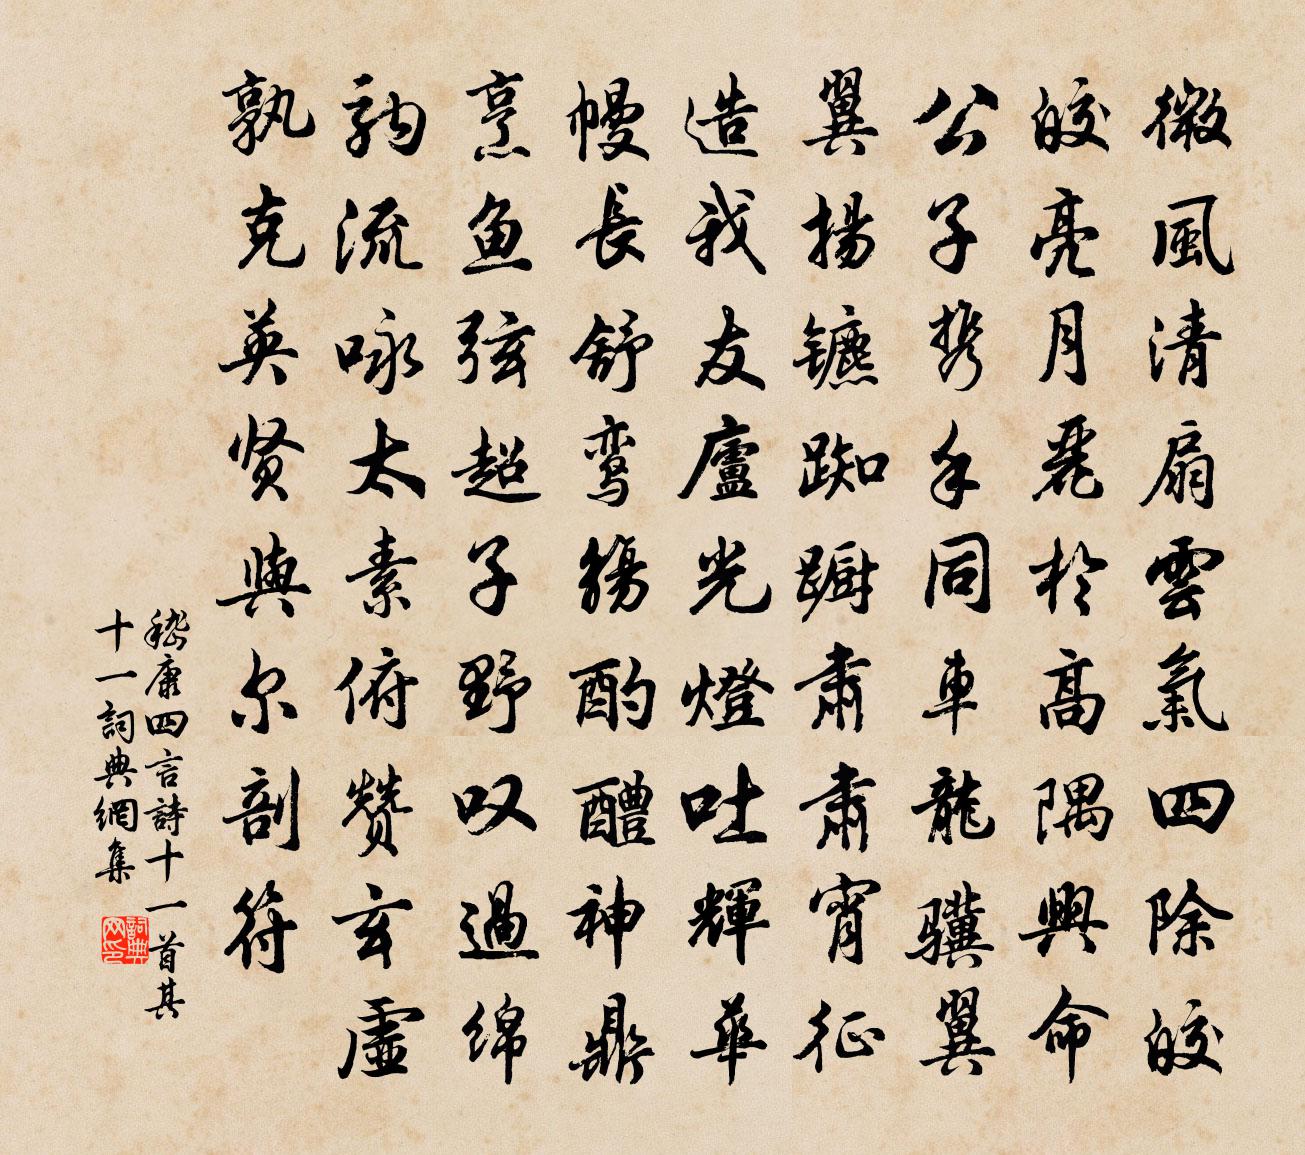 微風清扇雲氣四除皎
皎亮月麗於高隅興命
公子携手同車龍骥翼
翼揚镳踟蹰肅肅宵征
造我友廬光燈吐輝華
幔長舒鸾觴酌醴神鼎
烹鱼弦超子野叹過绵
驹流咏太素俯赞玄虛
孰克英贤與尔剖符
嵇康四言詩十一首其
十一詞典網集
詞典
网印